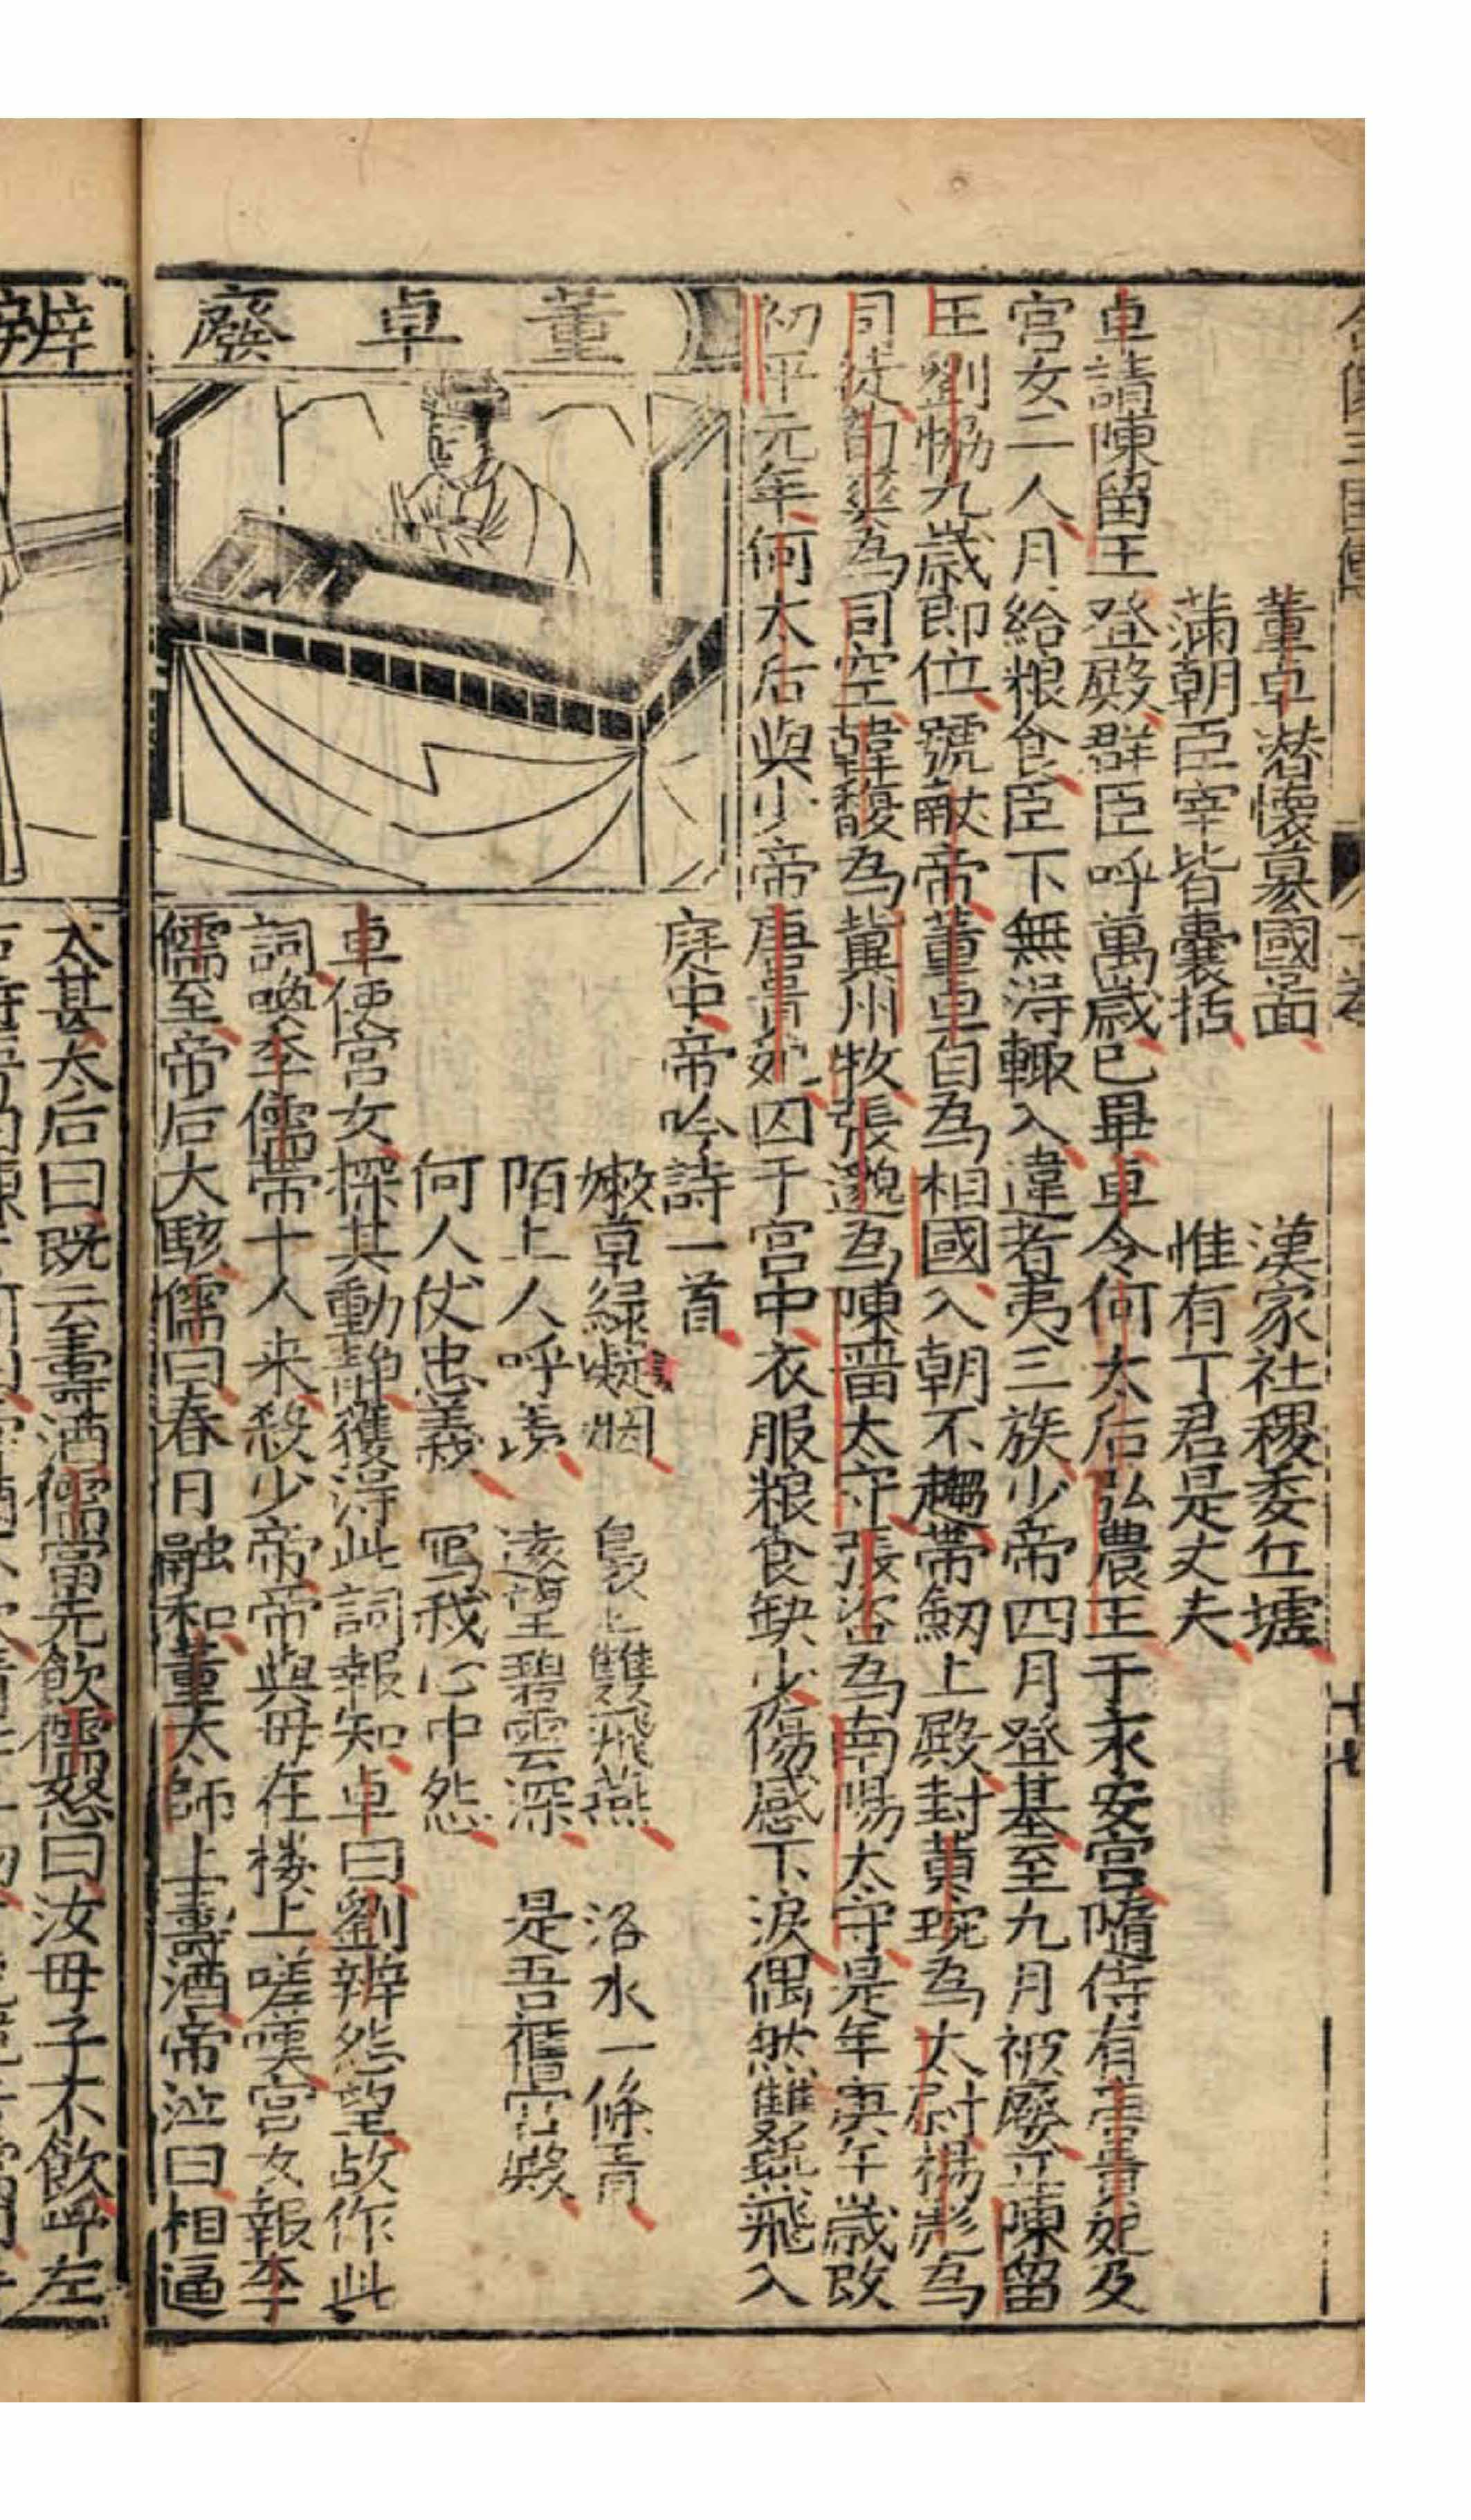 董卓潜懷㒲國啚　漢家社稷委丘墟
滿朝臣宰皆囊括　惟有丁君是丈夫
卓請陳留王登殿群臣呼萬歲已畢卓令何太后弘農王于永安宮隨侍有唐貴妃及
宮女二人月給粮食臣下無淂輙入違者夷三族少帝四月登基至九月被廢立陳留
王劉恊九歲即位號献帝董卓自為相國入朝不趨帶劒上殿封黄琬為太尉楊彪為
司徒荀爽為司空韓馥為冀州牧張邈為陳畱太守張咨為南陽太守是年庚午歲改
初平元年何太后與少帝唐貴妃囚于宮中衣服粮食缺少傷感下淚偶然雙燕飛入
董卓廢
庭中帝吟詩一首
嫩草緑凝烟　裊裊雙飛燕　洛水一條青
陌上人呼羡　遠望碧雲深　是吾舊宮殿
何人仗忠義　寫我心中怨
卓使宮女探其動静獲淂此詞報知卓曰劉辨怨望故作此
詞喚李儒帶十人来殺少帝帝與母在楼上嗟嘆宮女報李
儒至帝后大駭儒曰春日融和董太師上壽酒帝泣曰相逼
辨
太甚太后曰既云壽酒儒當先飲儒怒曰汝母子不飲呼左